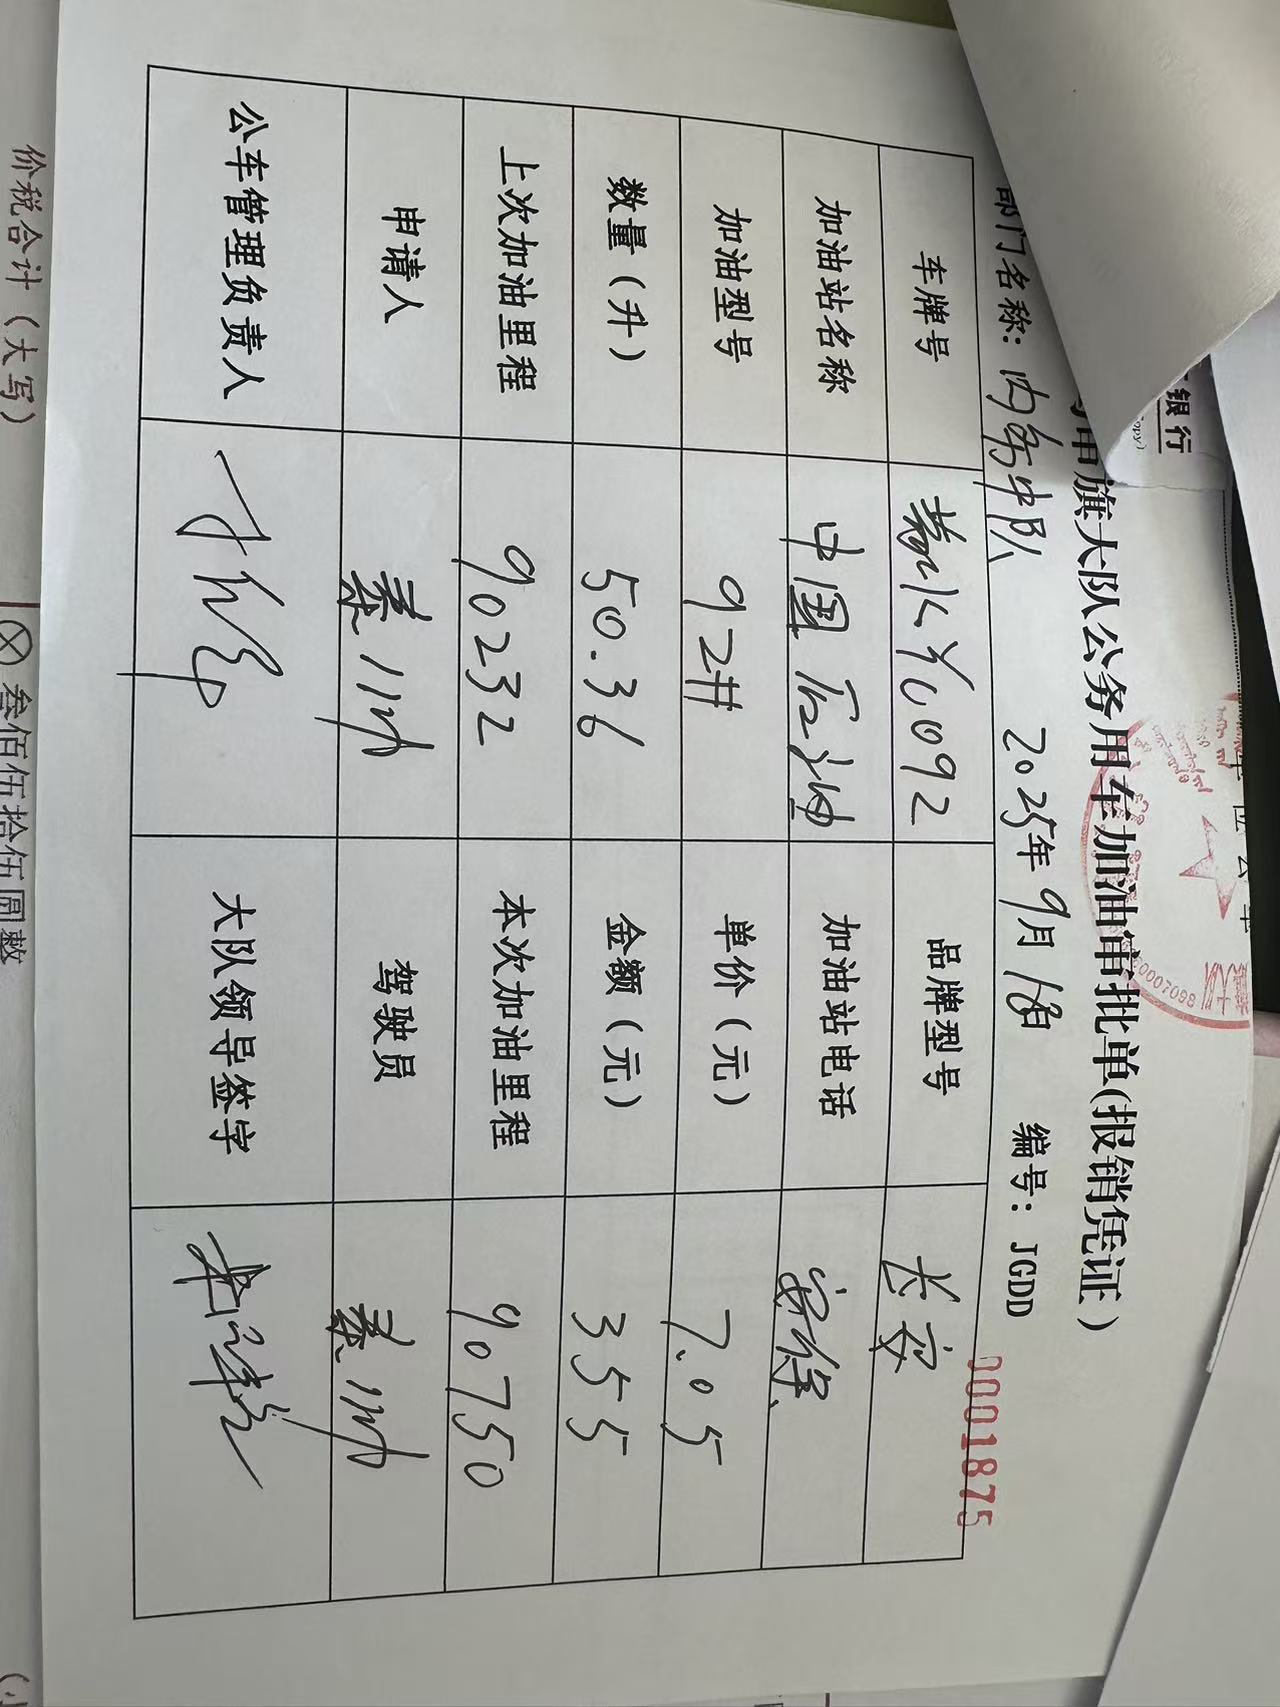 旗大队公务用车加油审批单(报销凭证)
部门名称: 内务中队 2025年9月18日 编号: JGDD 0001875
车牌号 蒙K Y0092 品牌型号 长安
加油站名称 中国石油 加油站电话
加油型号 92# 单价(元) 7.05
数量(升) 50.36 金额(元) 355
上次加油里程 90232 本次加油里程 90750
申请人 驾驶员
公车管理负责人 大队领导签字
价税合计(大写) ⊗叁佰伍拾伍圆整
银行